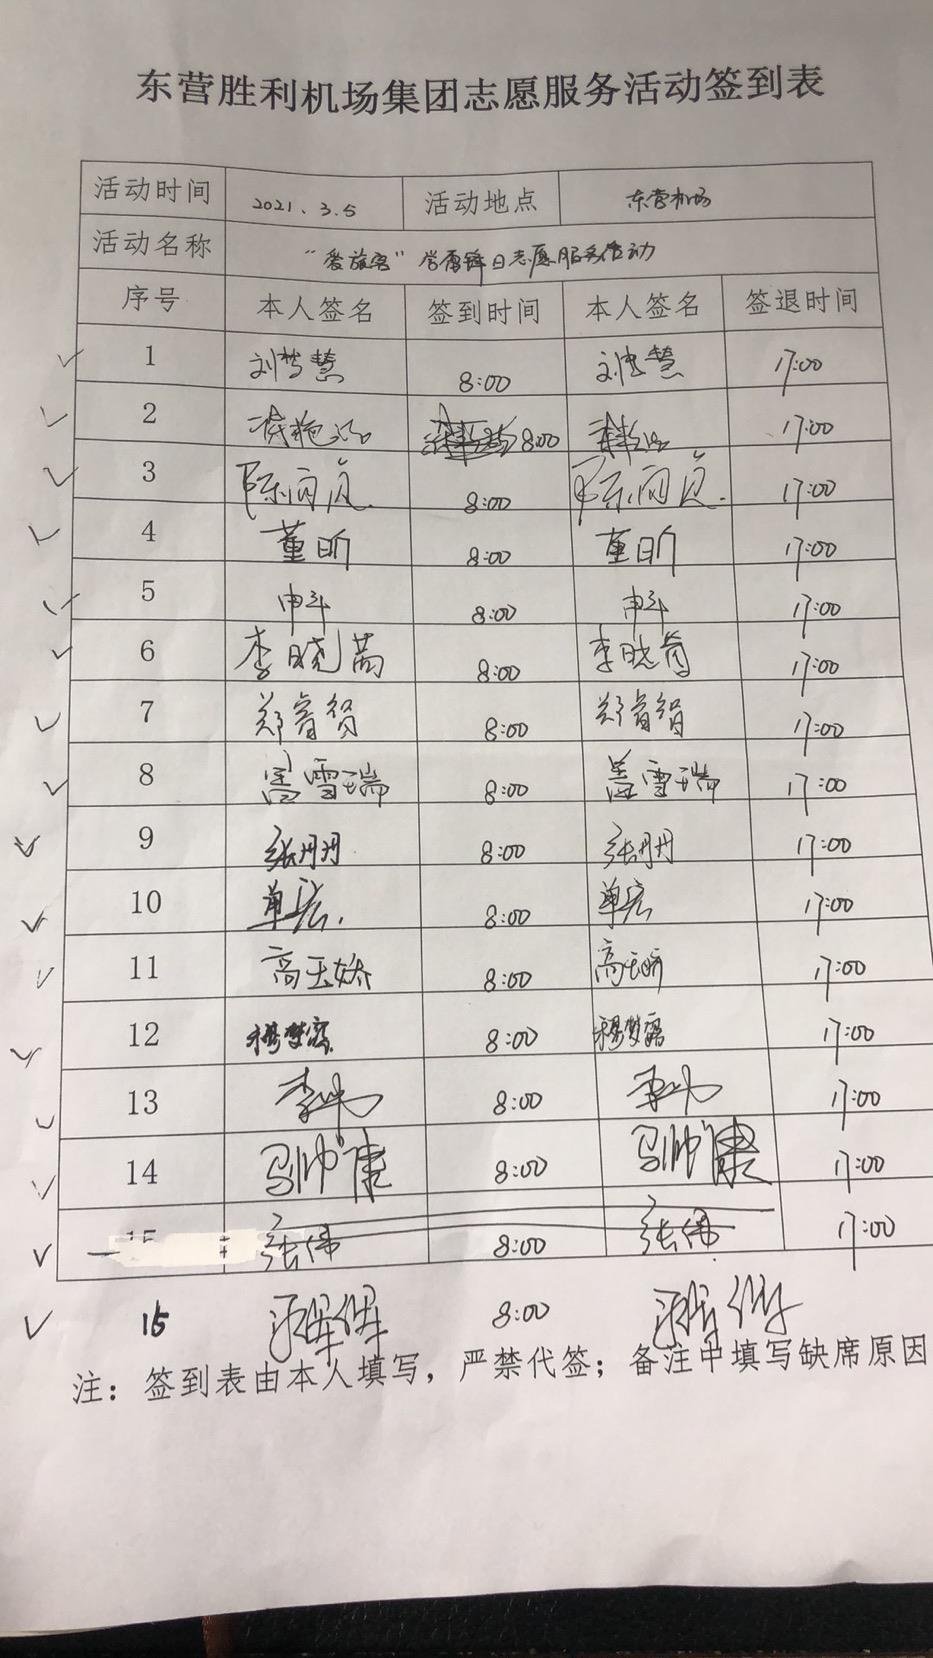 东营胜利机场集团志愿服务活动签到表
活动时间 2021.3.5 活动地点 东营机场
活动名称 "爱旅客"学雷锋日志愿服务活动
序号 本人签名 签到时间 本人签名 签退时间
1 刘梦慧 8:00 刘梦慧 17:00
2 8:00 17:00
3 8:00 17:00
4 董昕 8:00 董昕 17:00
5 申斗 8:00 申斗 17:00
6 李晓 8:00 李晓 17:00
7 郑睿智 8:00 郑睿智 17:00
8 盖雪瑞 8:00 盖雪瑞 17:00
9 张丹丹 8:00 张丹丹 17:00
10 单宏 8:00 单宏 17:00
11 高玉娇 8:00 高玉娇 17:00
12 穆梦露 8:00 穆梦露 17:00
13 李 8:00 李 17:00
14 马帅康 8:00 马帅康 17:00
15 张伟 8:00 张伟 17:00
15 8:00
注：签到表由本人填写，严禁代签；备注中填写缺席原因